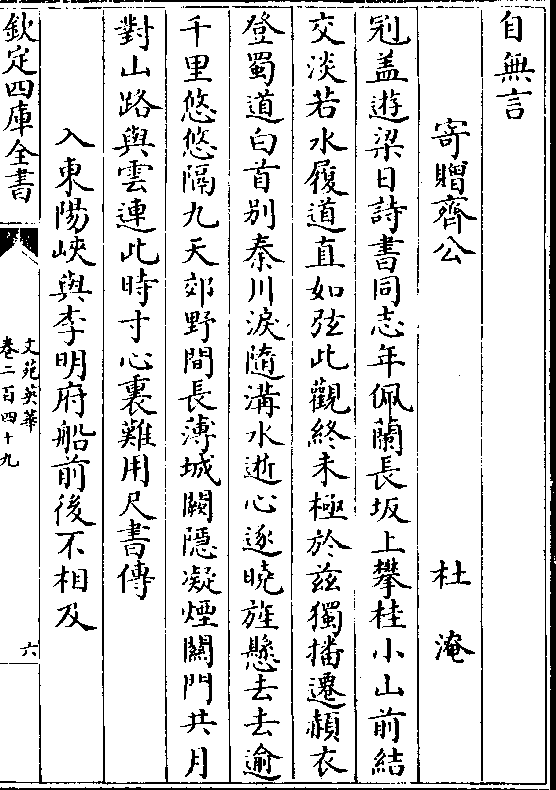 自無言
寄贈齊公　杜淹
冠盖遊梁日詩書同志年佩蘭長坂上攀桂小山前結
交淡若水履道直如弦此觀終未極於兹獨播遷赬衣
登蜀道白首别秦川淚隨溝水逝心逐曉旌懸去去逾
千里悠悠隔九天郊野間長薄城闕隱凝煙關門共月
對山路與雲連此時寸心裏難用尺書傳
入東陽峽與李明府船前後不相及
欽定四庫全書
文苑英華
卷二百四十九
六